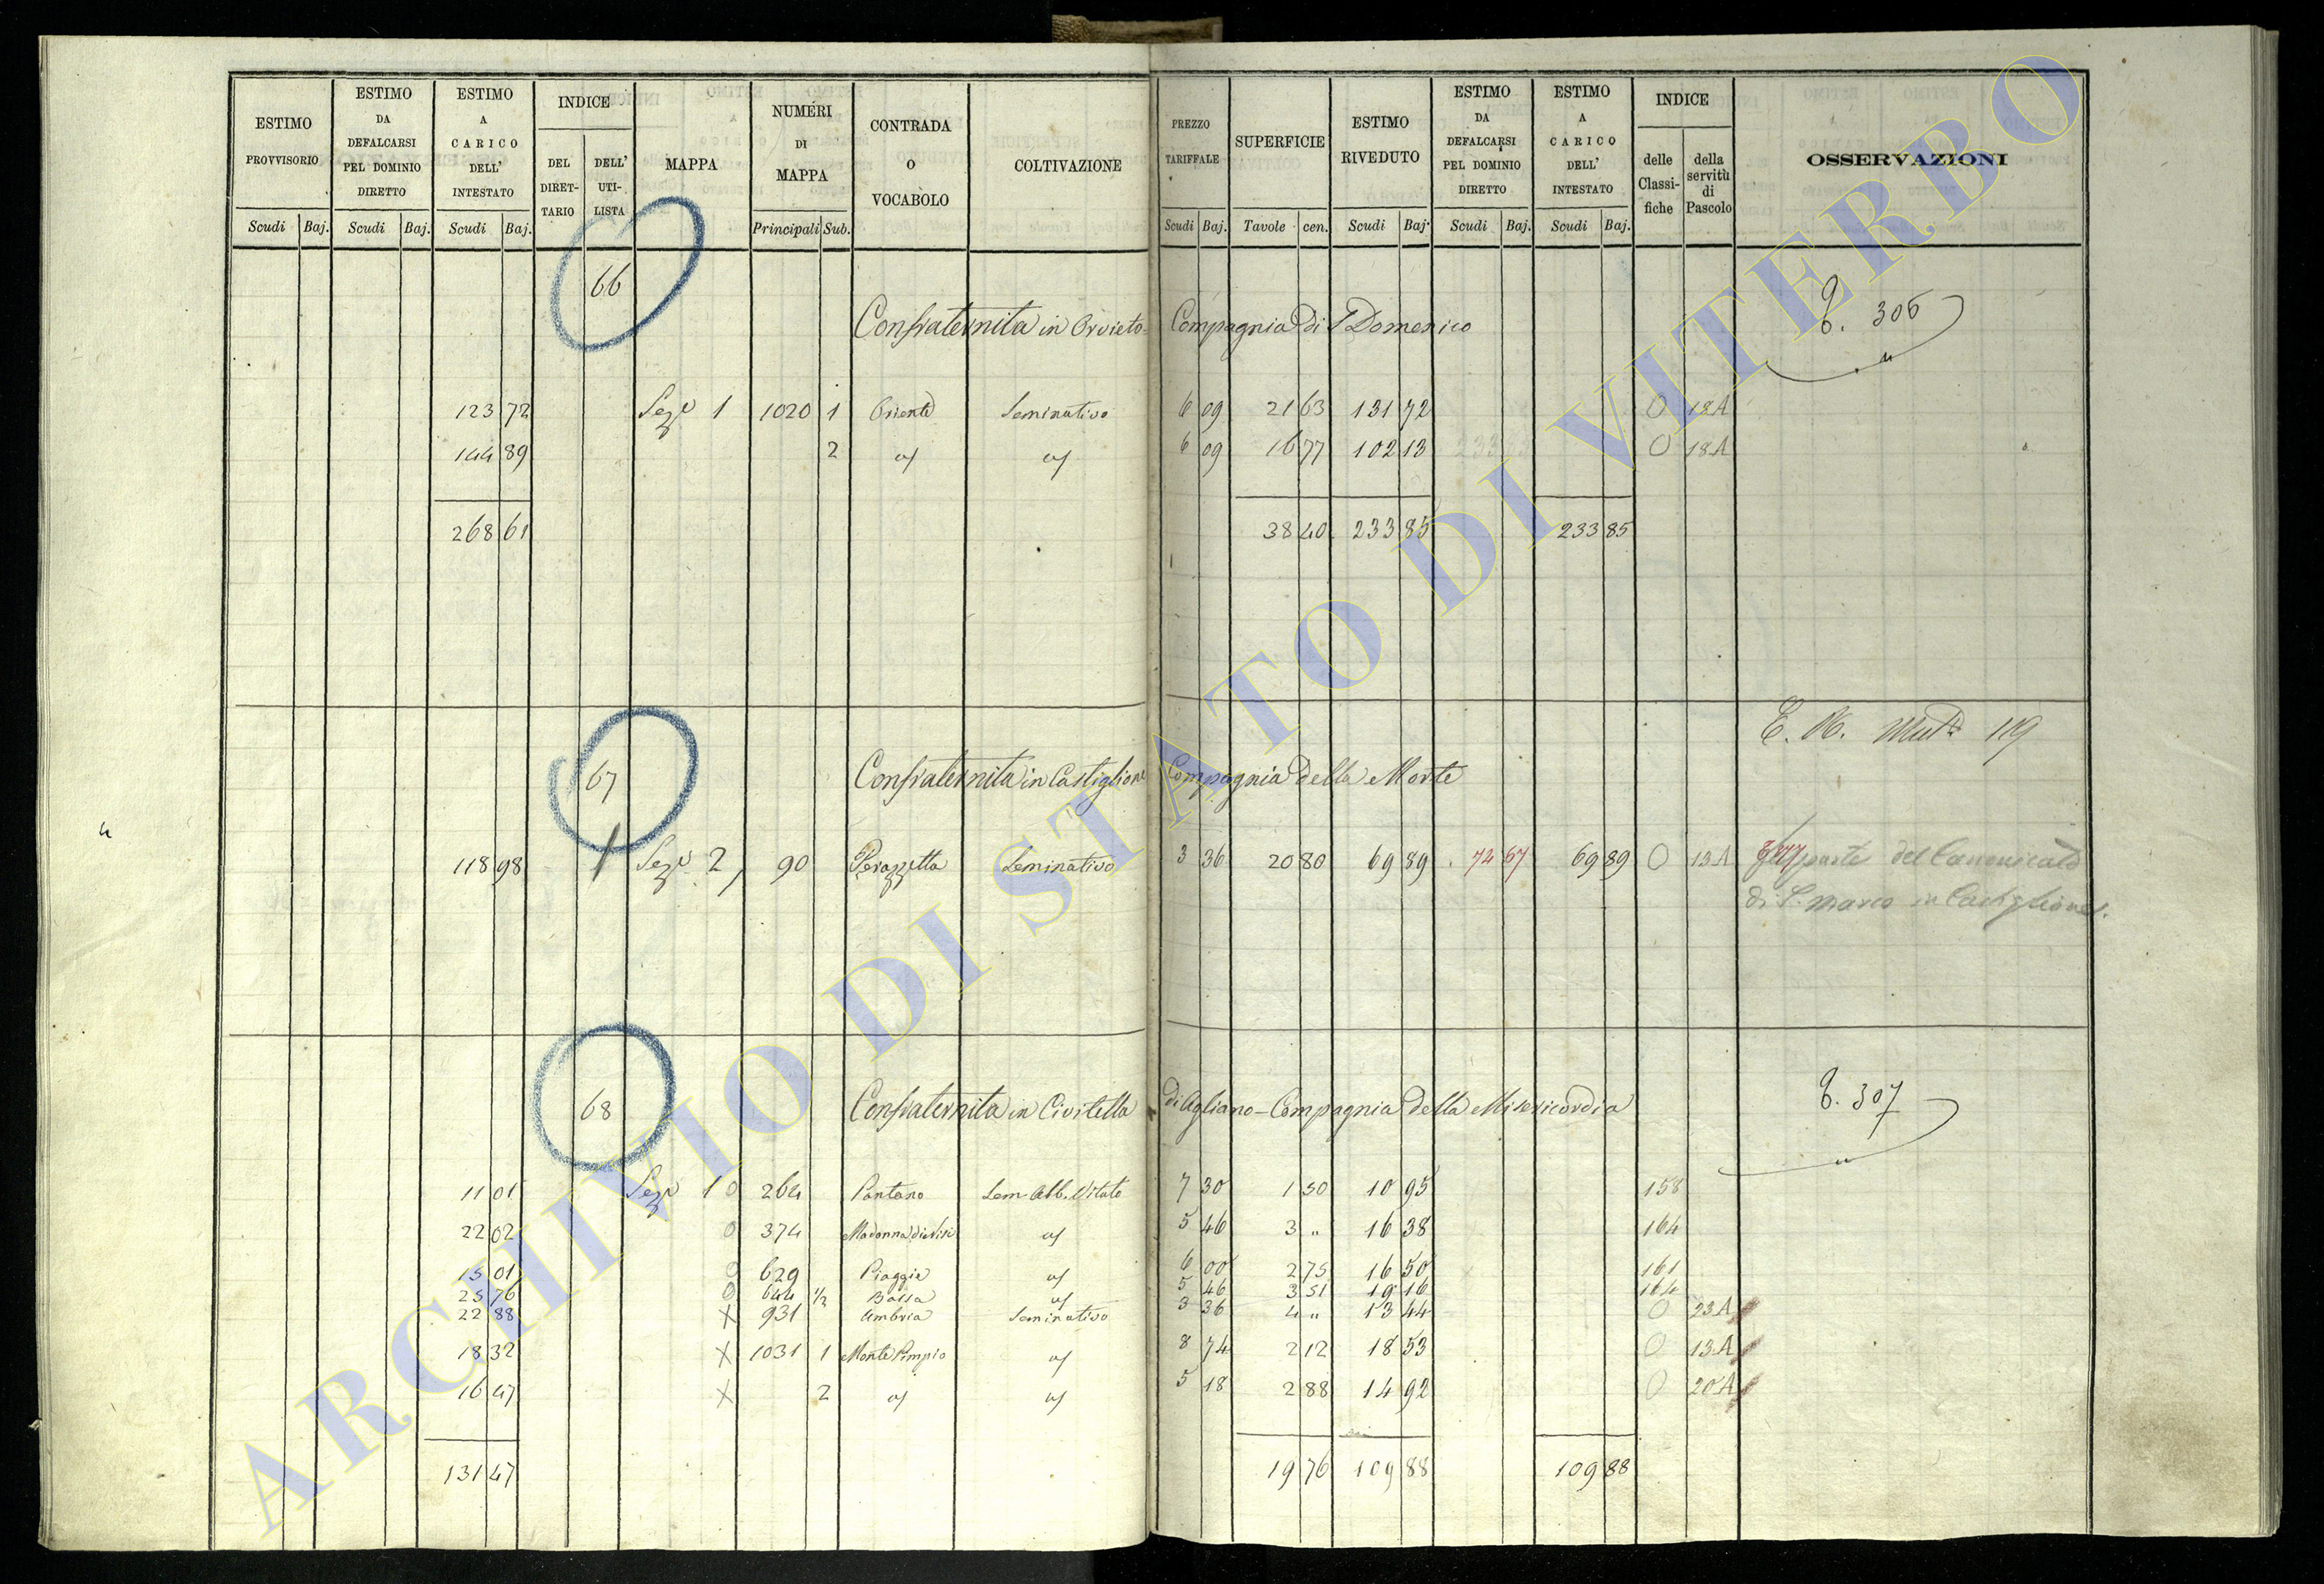 ESTIMO PROVVISORIO
ESTIMO DA DEFALCARSI PEL DOMINIO DIRETTO
ESTIMO A CARICO DELL' INTESTATO
INDICE
DEL DIRETTARIO
DELL' UTILISTA
MAPPA
NUMERI DI MAPPA
CONTRADA O VOCABOLO
COLTIVAZIONE
PREZZO TARIFFALE
SUPERFICIE
ESTIMO RIVEDUTO
ESTIMO DA DEFALCARSI PEL DOMINIO DIRETTO
ESTIMO A CARICO DELL' INTESTATO
INDICE
delle Classifiche
della servitù di Pascolo
OSSERVAZIONI
Scudi Baj. Scudi Baj. Scudi Baj. Principali Sub. Scudi Baj. Tavole cen. Scudi Baj. Scudi Baj. Scudi Baj.
66
Confraternita in Orvieto - Compagnia di S Domenico
306
123 72 Sez.e 1 1020 1 Oriente Seminativo 6 09 21 63 131 72 O 18A
144 89 2 6 09 16 77 102 13 O 18A
268 61 38 40 233 85 233 85
67
Confraternita in Castiglione Compagnia della Morte
119
118 98 Sez.e 2 90 Perazzetta Seminativo 3 36 20 80 69 89 74 67 69 89 O 13A parte del Canonicato
di S. Marco in Castiglione
68
Confraternita in Civitella di Agliano - Compagnia della Misericordia
307
11 01 Sez.e 1 O 264 Pantano Sem. Alb. Vitato 7 30 1 50 10 95 158
22 02 O 374 Madonna 5 46 3 " 16 38 164
15 01 O 629 Piaggie 6 00 2 75 16 50 161
25 76 O 644 1/2 5 46 3 51 19 16 164
22 88 X 931 Umbria Seminativo 3 36 4 " 13 44 O 23A
18 32 X 1031 1 Monte Pimpio 8 74 2 12 18 53 O 13A
16 47 X 2 5 18 2 88 14 92 O 20A
131 47 19 76 109 88 109 88
ARCHIVIO DI STATO DI VITERBO